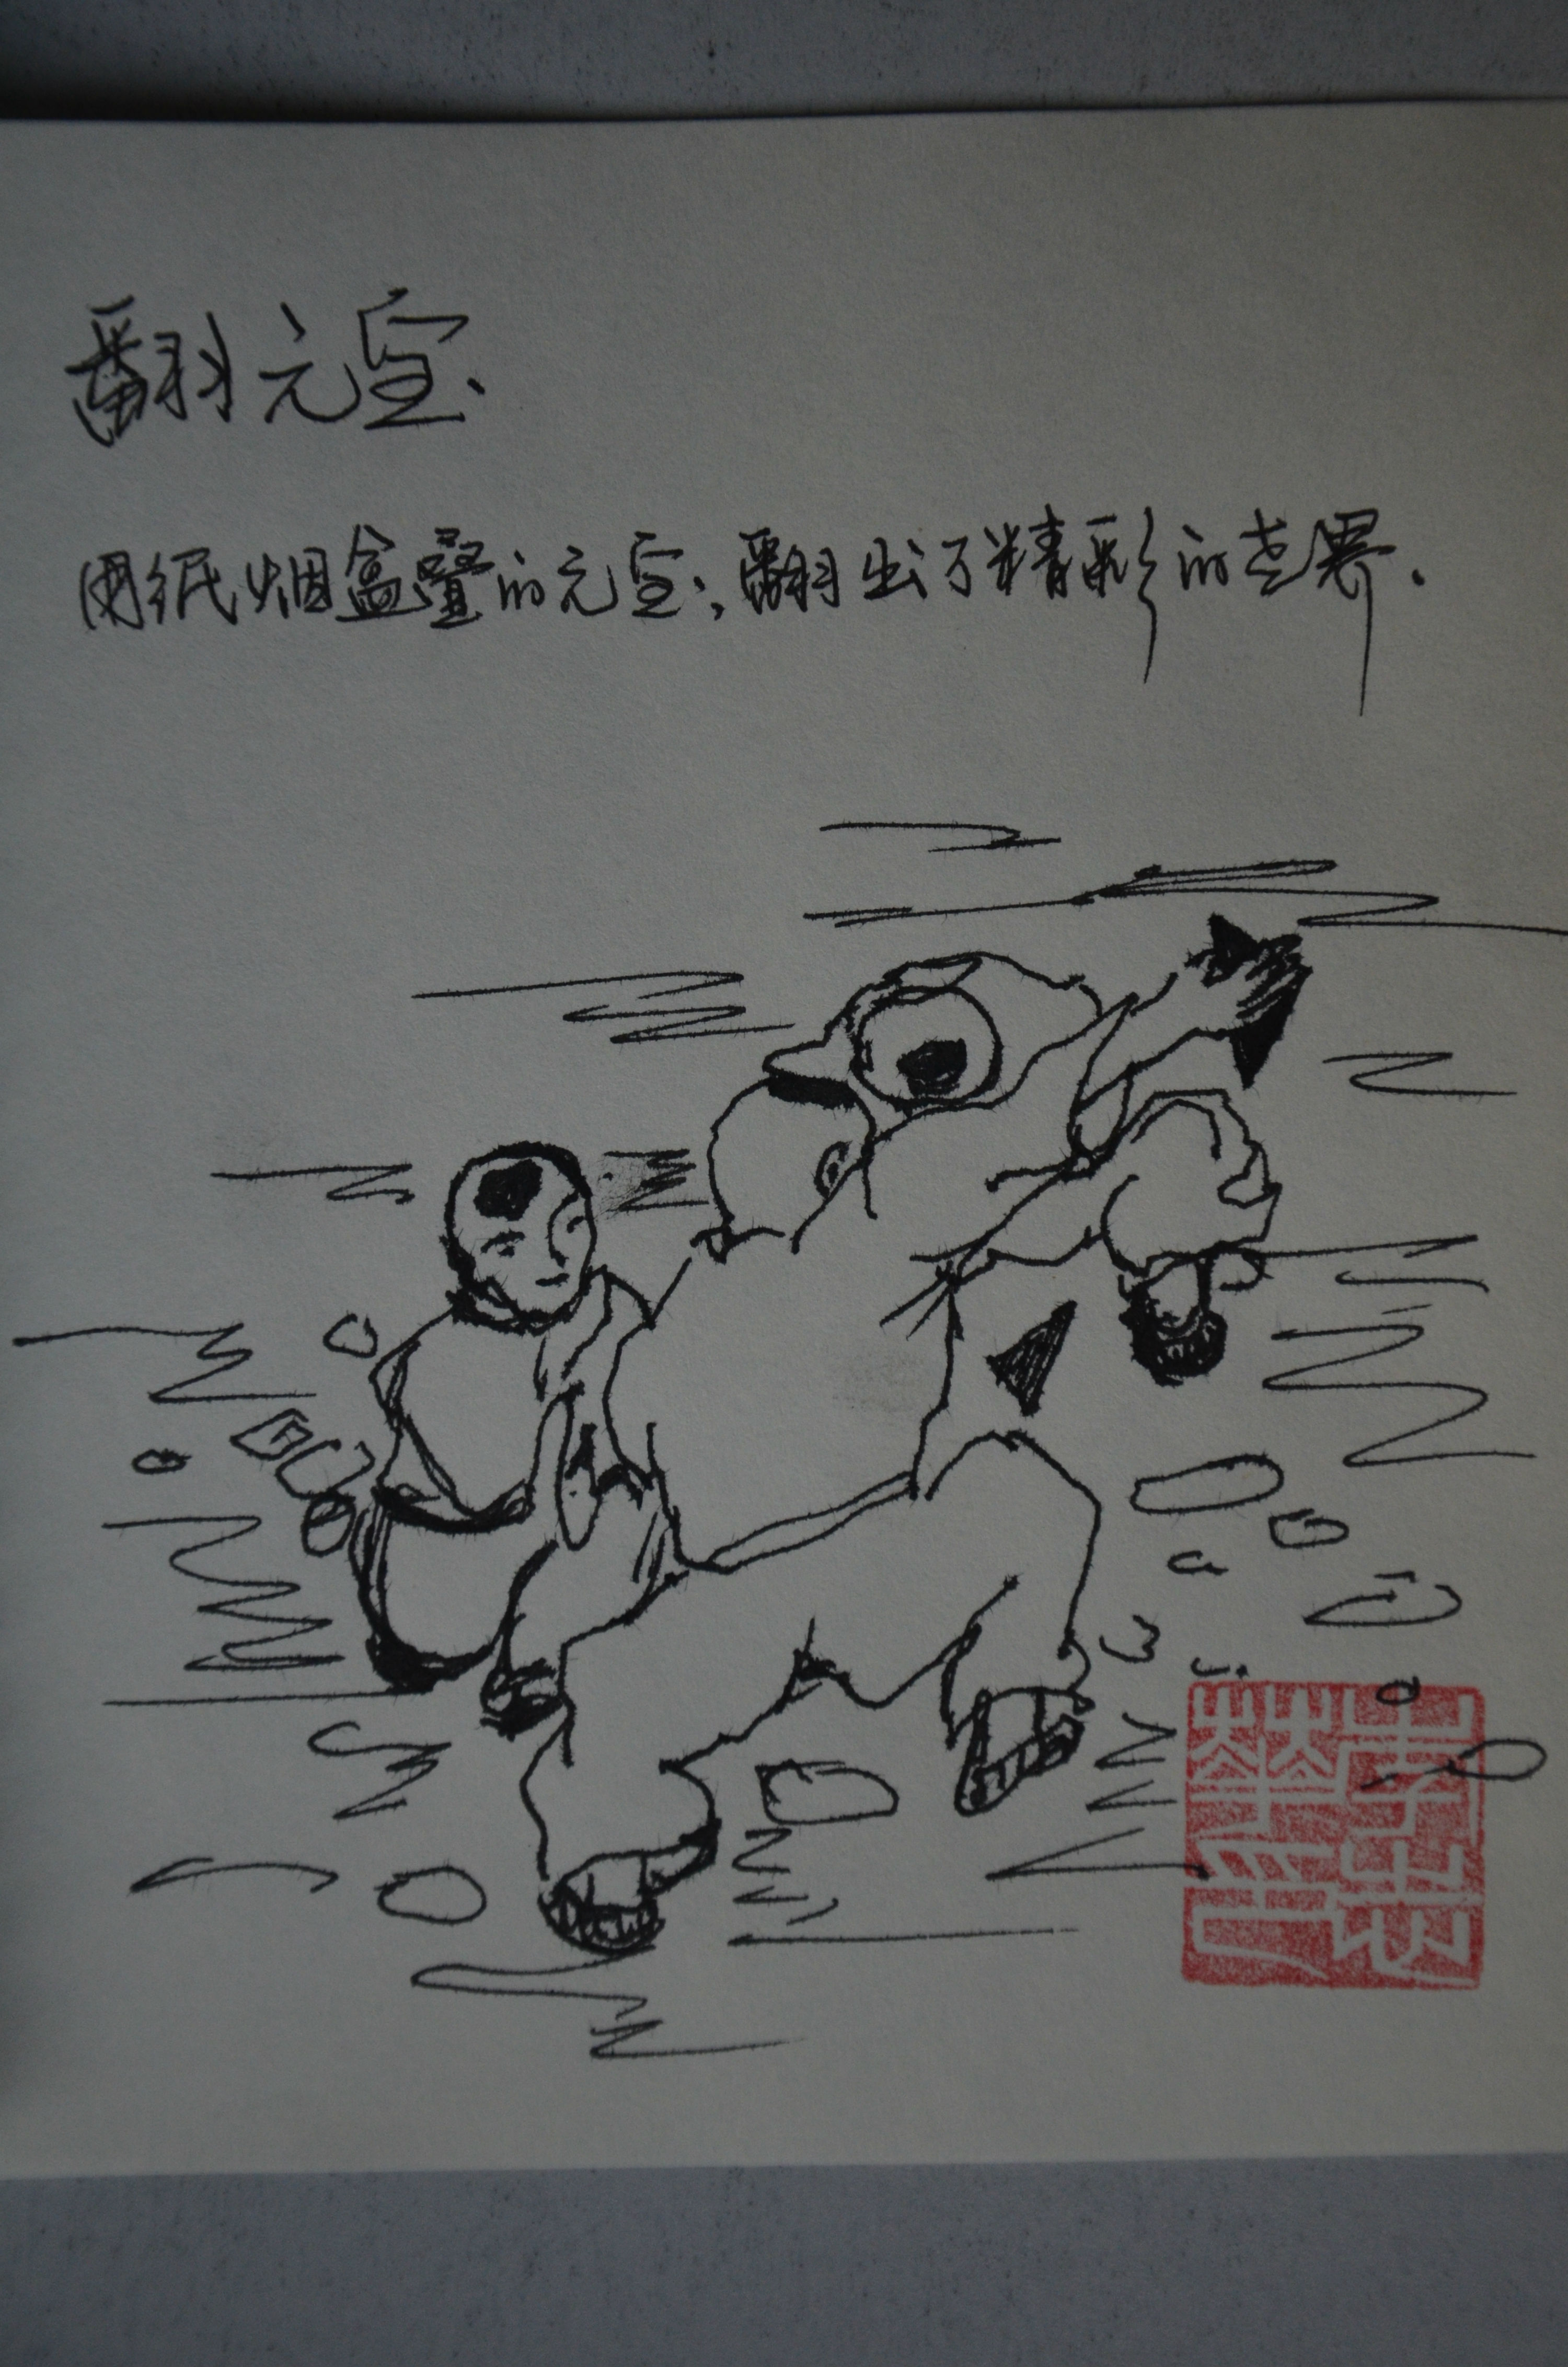 翻元宝
用纸烟盒叠的元宝,翻出了精彩的世界.